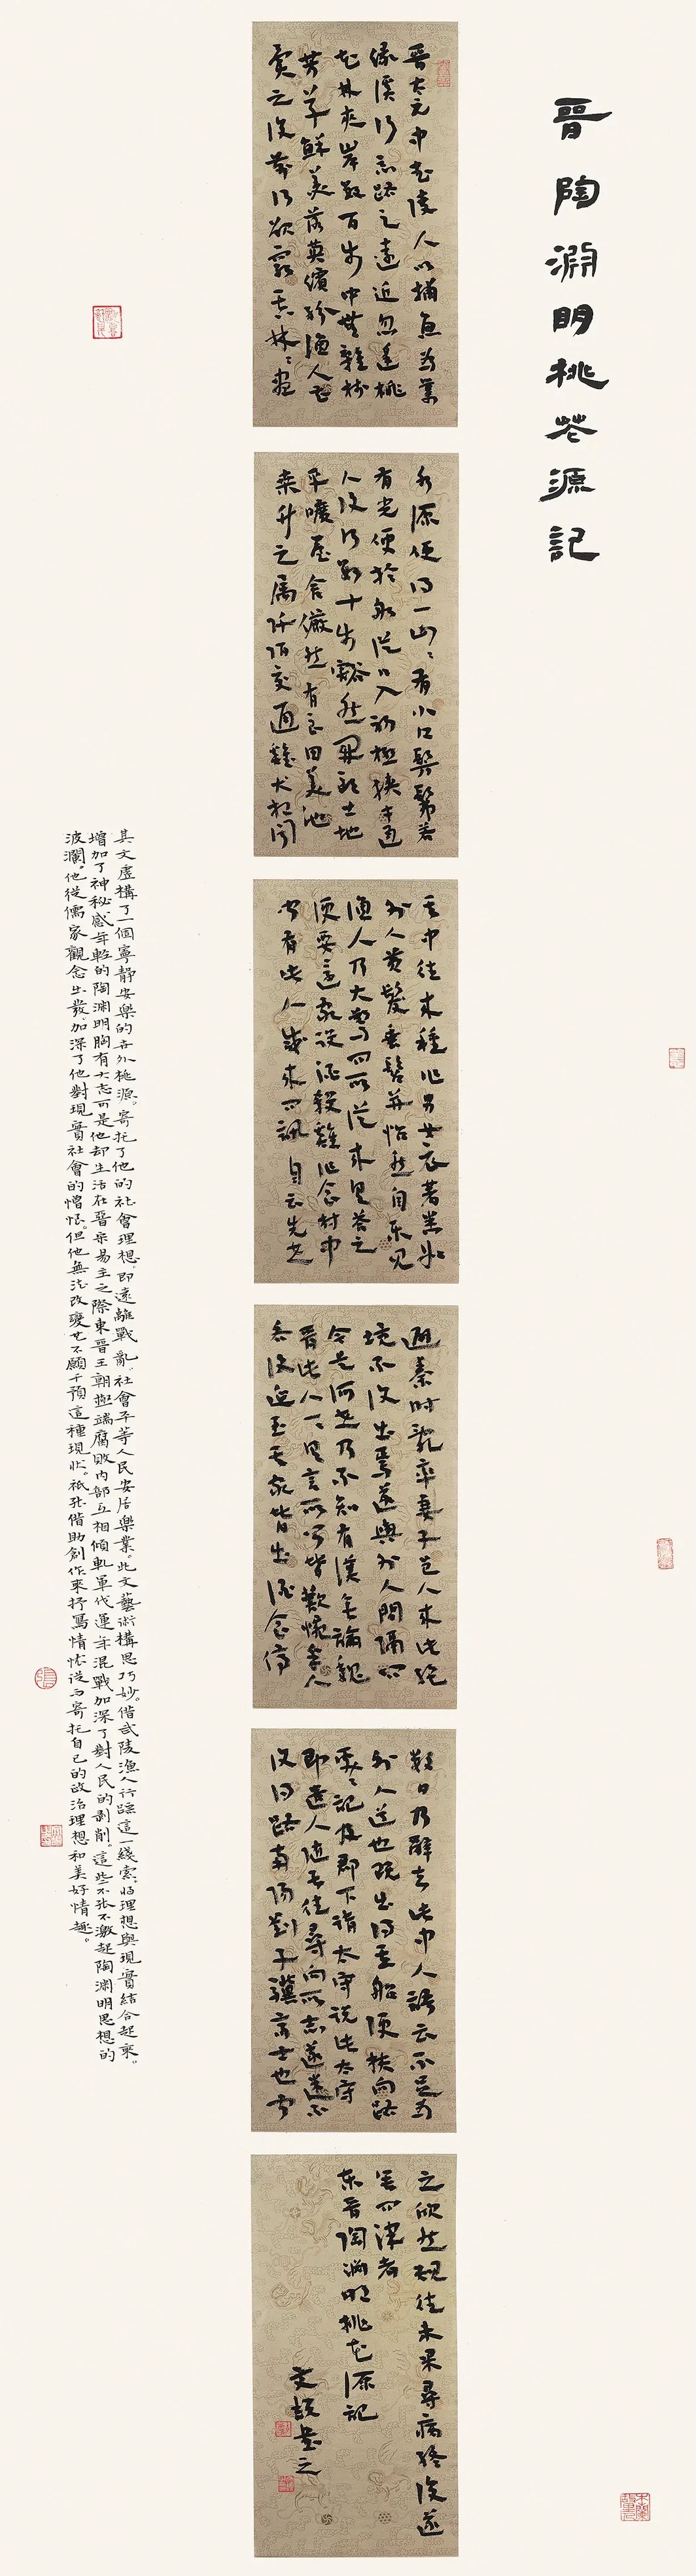 晉陶淵明桃花源記
晉太元中武陵人以捕魚為業
緣溪行忘路之遠近忽逢桃
花林夾岸數百步中無雜樹
芳草鮮美落英繽紛漁人甚
異之復前行欲窮其林〻盡
水源便得一山〻有小口髣髴若
有光便捨船從口入初極狹才通
人復行數十步豁然開朗土地
平曠屋舍儼然有良田美池
桑竹之屬阡陌交通雞犬相聞
其中往來種作男女衣著悉如
外人黃髮垂髫並怡然自樂見
漁人乃大驚問所從來具答之
便要還家設酒殺雞作食村中
聞有此人咸來問訊自云先世
避秦時亂率妻子邑人來此絕
境不復出焉遂與外人間隔問
今是何世乃不知有漢無論魏
晉此人一一具言所聞皆歎惋餘人
各復延至其家皆出酒食停
數日乃辭去此中人語云不足為
外人道也既出得其船便扶向路
處〻記及郡下詣太守說此太守
即遣人隨其往尋向所志遂迷不
復得路南陽劉子驥高士也聞
之欣然規往未果尋病終後遂
無問津者
東晉陶淵明桃花源記
書之
其文虛構了一個寧靜安樂的世外桃源。寄托了他的社會理想，即遠離戰亂，社會平等人民安居樂業。此文藝術構思巧妙。借武陵漁人行蹤這一綫索，把理想與現實結合起來。
增加了神秘感。年輕的陶淵明胸有大志可是他却生活在晉宋易主之際東晉王朝極端腐敗內部互相傾軋軍伐連年混戰加深了對人民的剥削。這些不能不激起陶淵明思想的
波瀾。他從儒家觀念出發，加深了他對現實社會的憎恨。但他無法改變也不願干預這種現狀。祇能借助創作來抒寫情懷從而寄托自己的政治理想和美好情趣。